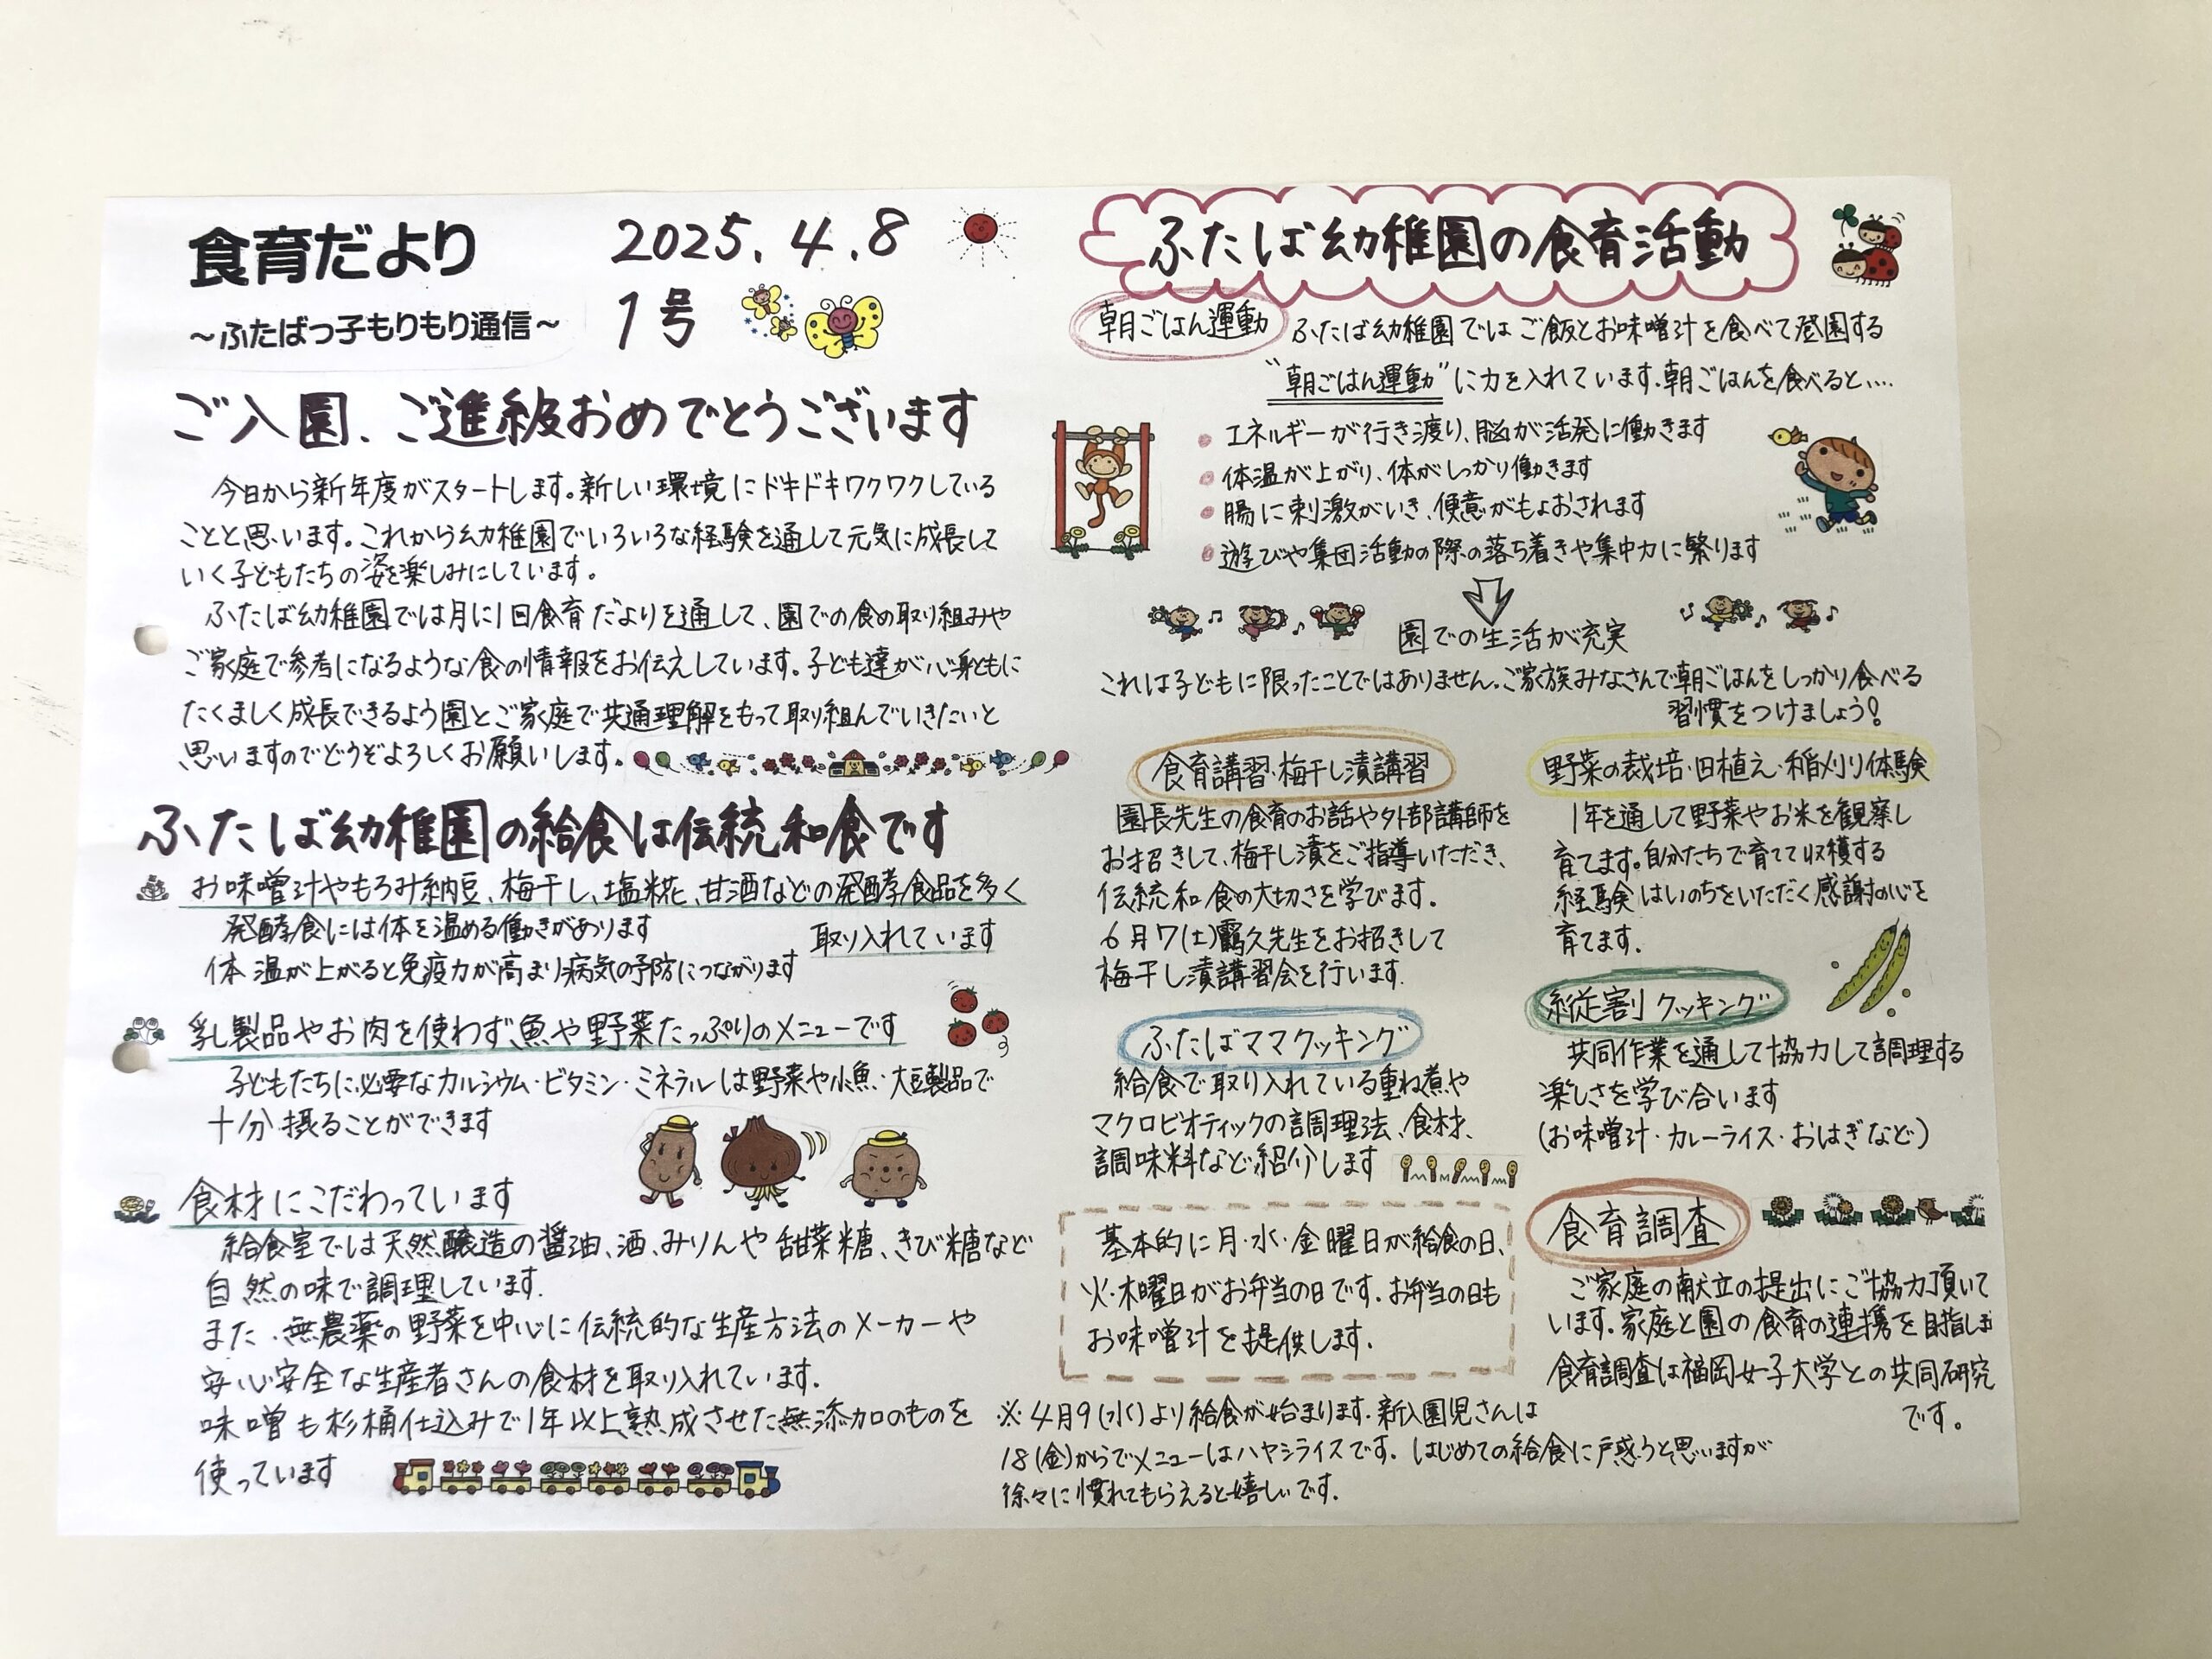 食育だより
～ふたばっ子もりもり通信～
2025.4.8
1号
ご入園、ご進級おめでとうございます
今日から新年度がスタートします。新しい環境にドキドキワクワクしている
ことと思います。これから幼稚園でいろいろな経験を通して元気に成長して
いく子どもたちの姿を楽しみにしています。
ふたば幼稚園では月に1回食育だよりを通して、園での食の取り組みや
ご家庭で参考になるような食の情報をお伝えしています。子ども達が心身ともに
たくましく成長できるよう園とご家庭で共通理解をもって取り組んでいきたいと
思いますのでどうぞよろしくお願いします。
ふたば幼稚園の給食は伝統和食です
お味噌汁やもろみ納豆、梅干し、塩糀、甘酒などの発酵食品を多く
取り入れています
発酵食には体を温める働きがあります
体温が上がると免疫力が高まり病気の予防につながります
乳製品やお肉を使わず、魚や野菜たっぷりのメニューです
子どもたちに必要なカルシウム・ビタミン・ミネラルは野菜や小魚・大豆製品で
十分摂ることができます
食材にこだわっています
給食室では天然醸造の醤油、酒、みりんや甜菜糖、きび糖など
自然の味で調理しています.
また、無農薬の野菜を中心に伝統的な生産方法のメーカーや
安心安全な生産者さんの食材を取り入れています.
味噌も杉桶仕込みで1年以上熟成させた無添加のものを
使っています
ふたば幼稚園の食育活動
朝ごはん運動 ふたば幼稚園ではご飯とお味噌汁を食べて登園する
"朝ごはん運動"に力を入れています.朝ごはんを食べると....
エネルギーが行き渡り、脳が活発に働きます
体温が上がり、体がしっかり働きます
腸に刺激がいき、便意がもよおされます
遊びや集団活動の際の落ち着きや集中力に繋ります
園での生活が充実
これは子どもに限ったことではありません.ご家族みなさんで朝ごはんをしっかり食べる
習慣をつけましょう!
食育講習・梅干し漬講習
園長先生の食育のお話や外部講師を
お招きして、梅干し漬をご指導いただき、
伝統和食の大切さを学びます.
6月7(土)靏久先生をお招きして
梅干し漬講習会を行います.
ふたばママクッキング
給食で取り入れている重ね煮や
マクロビオティックの調理法、食材、
調味料など紹介します
基本的に月・水・金曜日が給食の日、
火・木曜日がお弁当の日です.お弁当の日も
お味噌汁を提供します.
野菜の栽培・田植え・稲刈り体験
1年を通して野菜やお米を観察し
育てます.自分たちで育てて収穫する
経験はいのちをいただく感謝の心を
育てます.
縦割クッキング
共同作業を通して協力して調理する
楽しさを学び合います
(お味噌汁・カレーライス・おはぎなど)
食育調査
ご家庭の献立の提出にご協力頂いて
います.家庭と園の食育の連携を目指しま
食育調査は福岡女子大学との共同研究
です.
※4月9(水)より給食が始まります.新入園児さんは
18(金)からでメニューはハヤシライスです. はじめての給食に戸惑うと思いますが
徐々に慣れてもらえると嬉しいです.